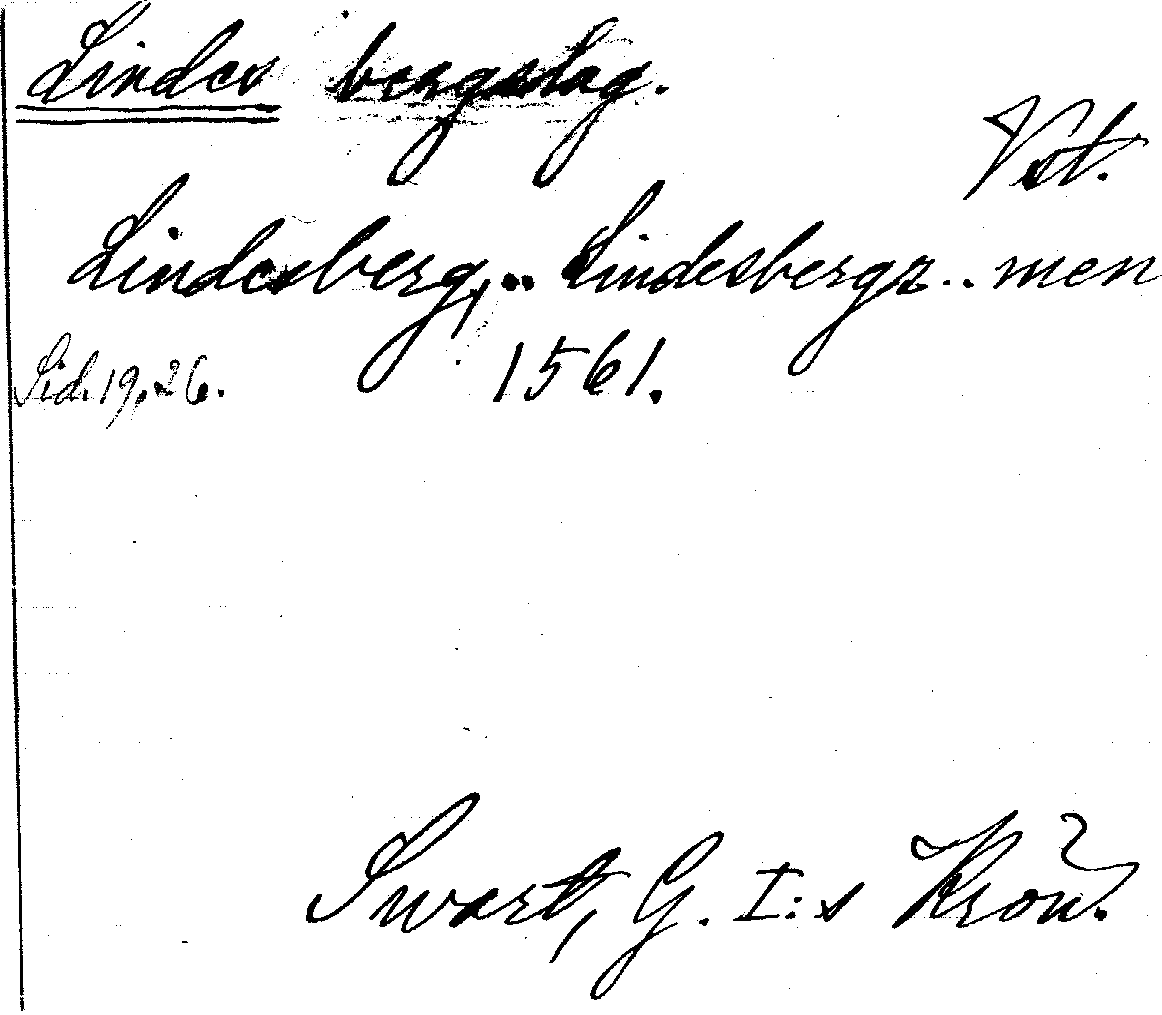 Lindes bergslag.
Vstl.
Lindesberg, .. Lindesbergz .. men
Sid. 19, 26. 1561.
Swart, G. I:s Krön.